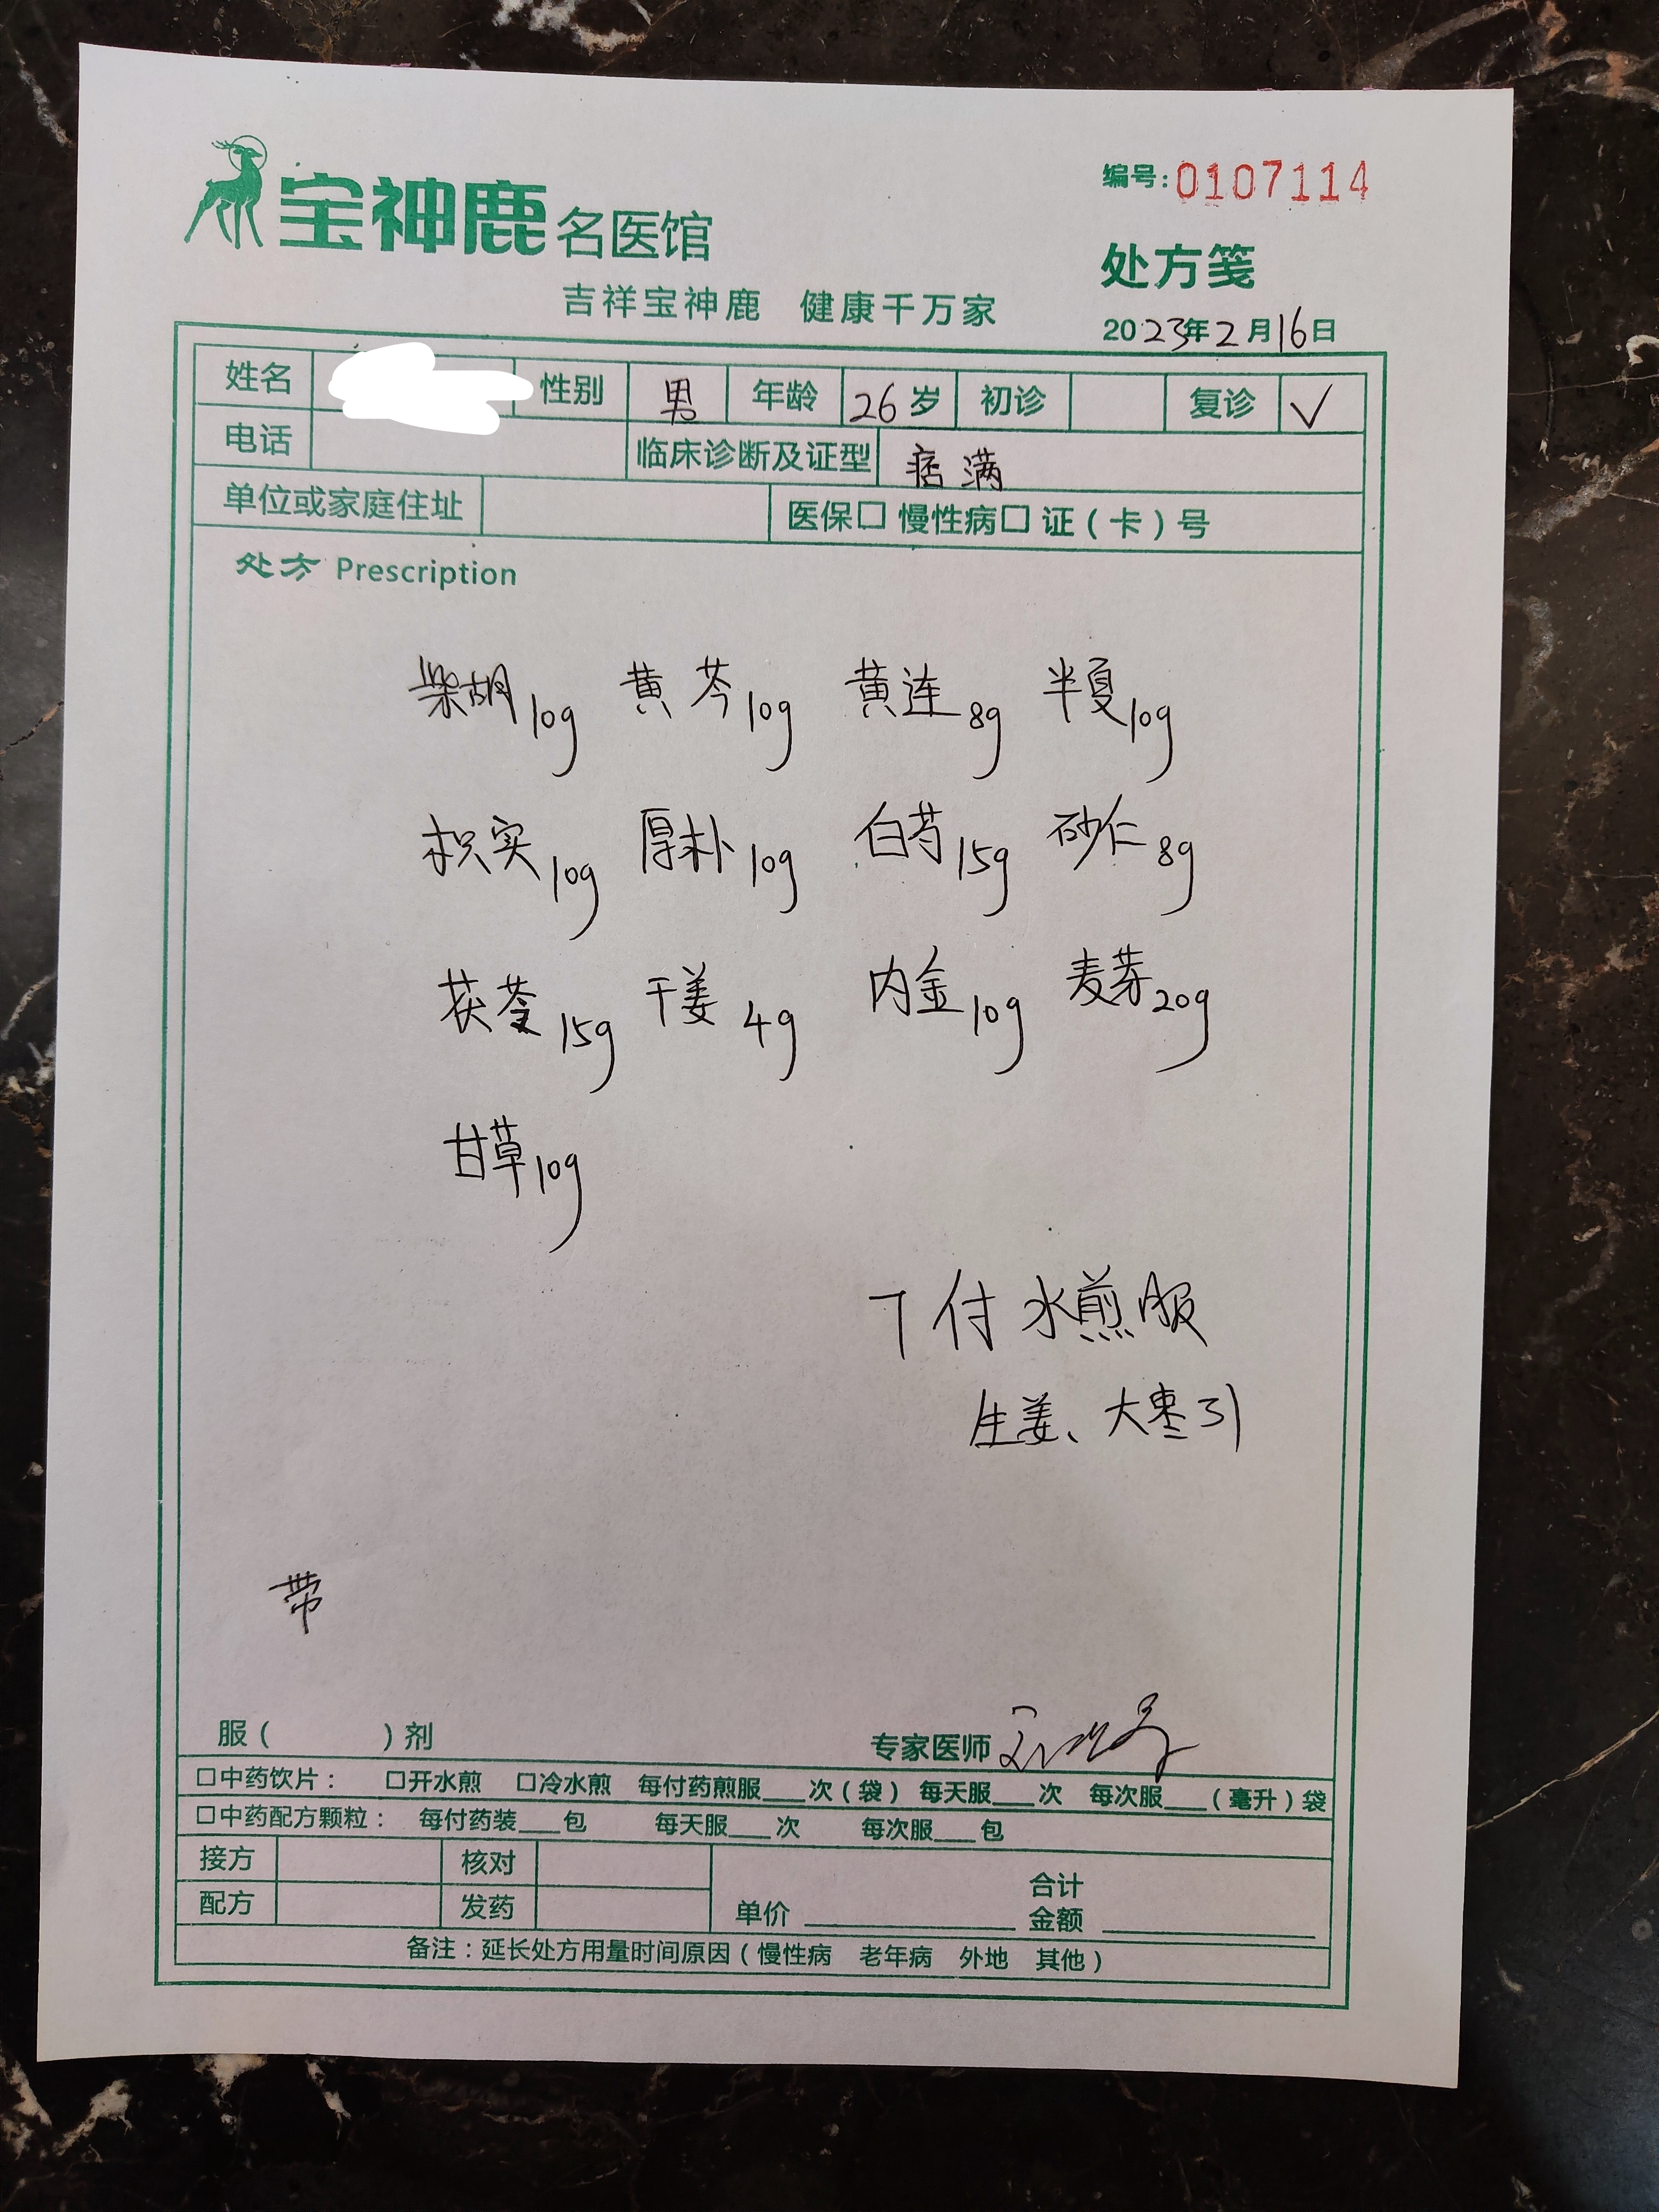 宝神鹿名医馆
编号:0107114
吉祥宝神鹿 健康千万家
处方笺
2023年2月16日
姓名 性别 男 年龄 26岁 初诊 复诊 √
电话 临床诊断及证型 痞满
单位或家庭住址 医保□ 慢性病□ 证(卡)号
处方 Prescription
柴胡10g 黄芩10g 黄连8g 半夏10g
枳实10g 厚朴10g 白芍15g 砂仁8g
茯苓15g 干姜4g 内金10g 麦芽20g
甘草10g
7付水煎服
生姜、大枣引
带
服( )剂 专家医师
□中药饮片: □开水煎 □冷水煎 每付药煎服___次(袋) 每天服___次 每次服___(毫升)袋
□中药配方颗粒: 每付药装___包 每天服___次 每次服___包
接方 核对 合计
配方 发药 单价 ______ 金额 ______
备注:延长处方用量时间原因(慢性病 老年病 外地 其他)